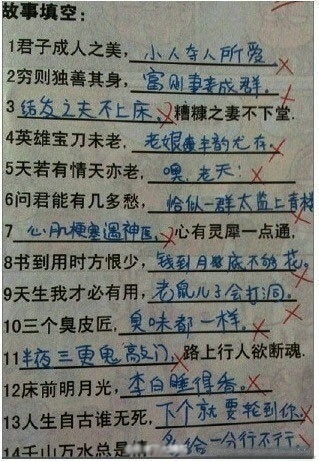 故事填空:
1君子成人之美,小人夺人所爱。
2穷则独善其身,富则妻妾成群。
3结发之夫不上床,糟糠之妻不下堂.
4英雄宝刀未老,老娘丰韵尤存。
5天若有情天亦老,噢,老天!
6问君能有几多愁,恰似一群太监上青楼
7心肌梗塞遇神医,心有灵犀一点通.
8书到用时方恨少,钱到月底不够花。
9天生我才必有用,老鼠儿子会打洞。
10三个臭皮匠,臭味都一样。
11半夜三更鬼敲门,路上行人欲断魂.
12床前明月光,李白睡得香。
13人生自古谁无死,下个就要轮到你。
14千山万水总是情,多给一分行不行。